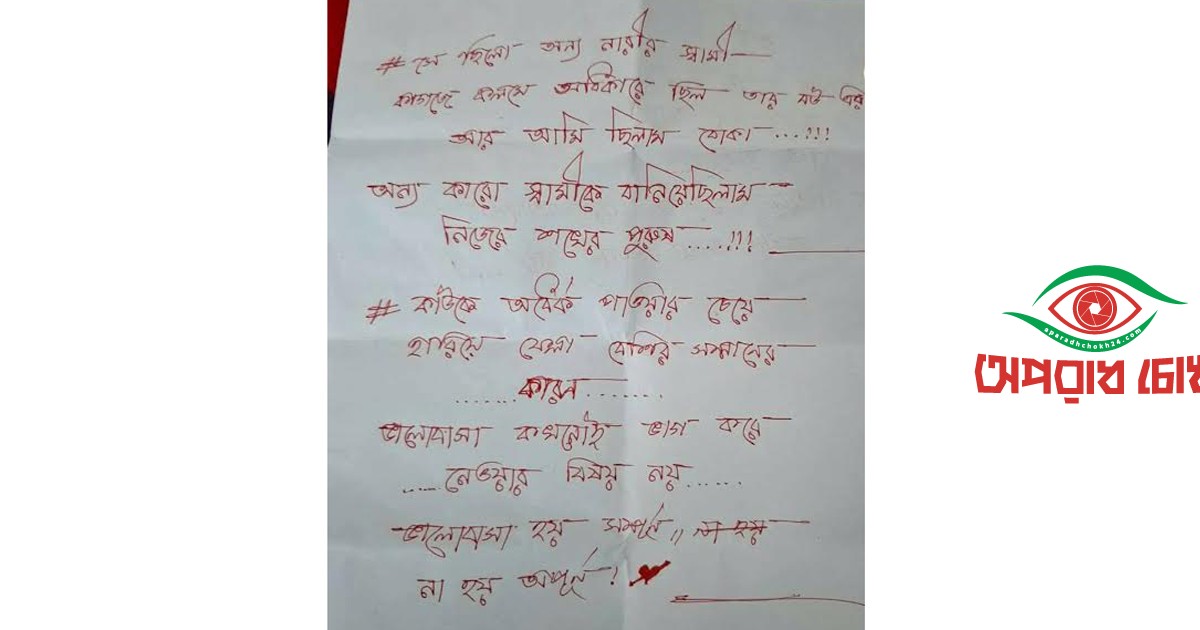 # সে ছিলো অন্য নারীর স্বামী—
কাগজে কলমে অধিকারে ছিল তার বউ এর
আর আমি ছিলাম বোকা ...!!!
অন্য কারো স্বামীকে বানিয়েছিলাম —
নিজের শখের পুরুষ ....!!!
# কাউকে অর্ধেক পাওয়ার চেয়ে —
হারিয়ে ফেলা বেশির সম্মানের
.......কারন.......
ভালোবাসা কখনোই ভাগ করে
......নেওয়ার বিষয় নয়......
ভালোবাসা হয় সম্পূর্ন,, না হয়
না হয় অপূর্ন !
aparadhchokh24.com
অপরাধ চোখ